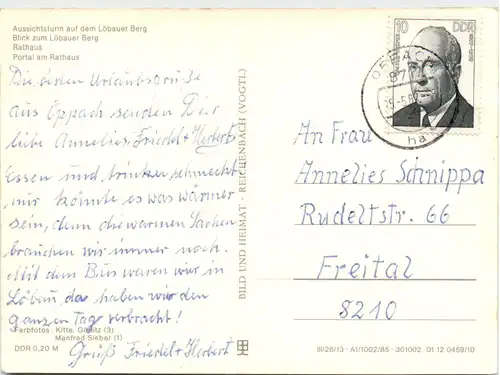 Aussichtsturm auf dem Löbauer Berg
Blick zum Löbauer Berg
Rathaus
Portal am Rathaus
Die besten Urlaubsgrüße
aus Oppach senden Dir
liebe Annelies, Friedel + Herbert
Essen und trinken schmeckt
nur könnte es was wärmer
sein, denn die warmen Sachen
brauchen wir immer noch.
Mit dem Bus waren wir in
Löbau, da haben wir den
ganzen Tag verbracht!
Gruß Friedel + Herbert
Farbfotos: Kitte, Görlitz (3)
Manfred Siebar (1)
DDR 0,20 M
BILD UND HEIMAT · REICHENBACH (VOGTL)
10 DDR
OPPACH
ha
An Frau
Annelies Schnippa
Rudeltstr. 66
Freital
8210
III/26/13 · A1/1002/85 · 301002 01 12 0459/10